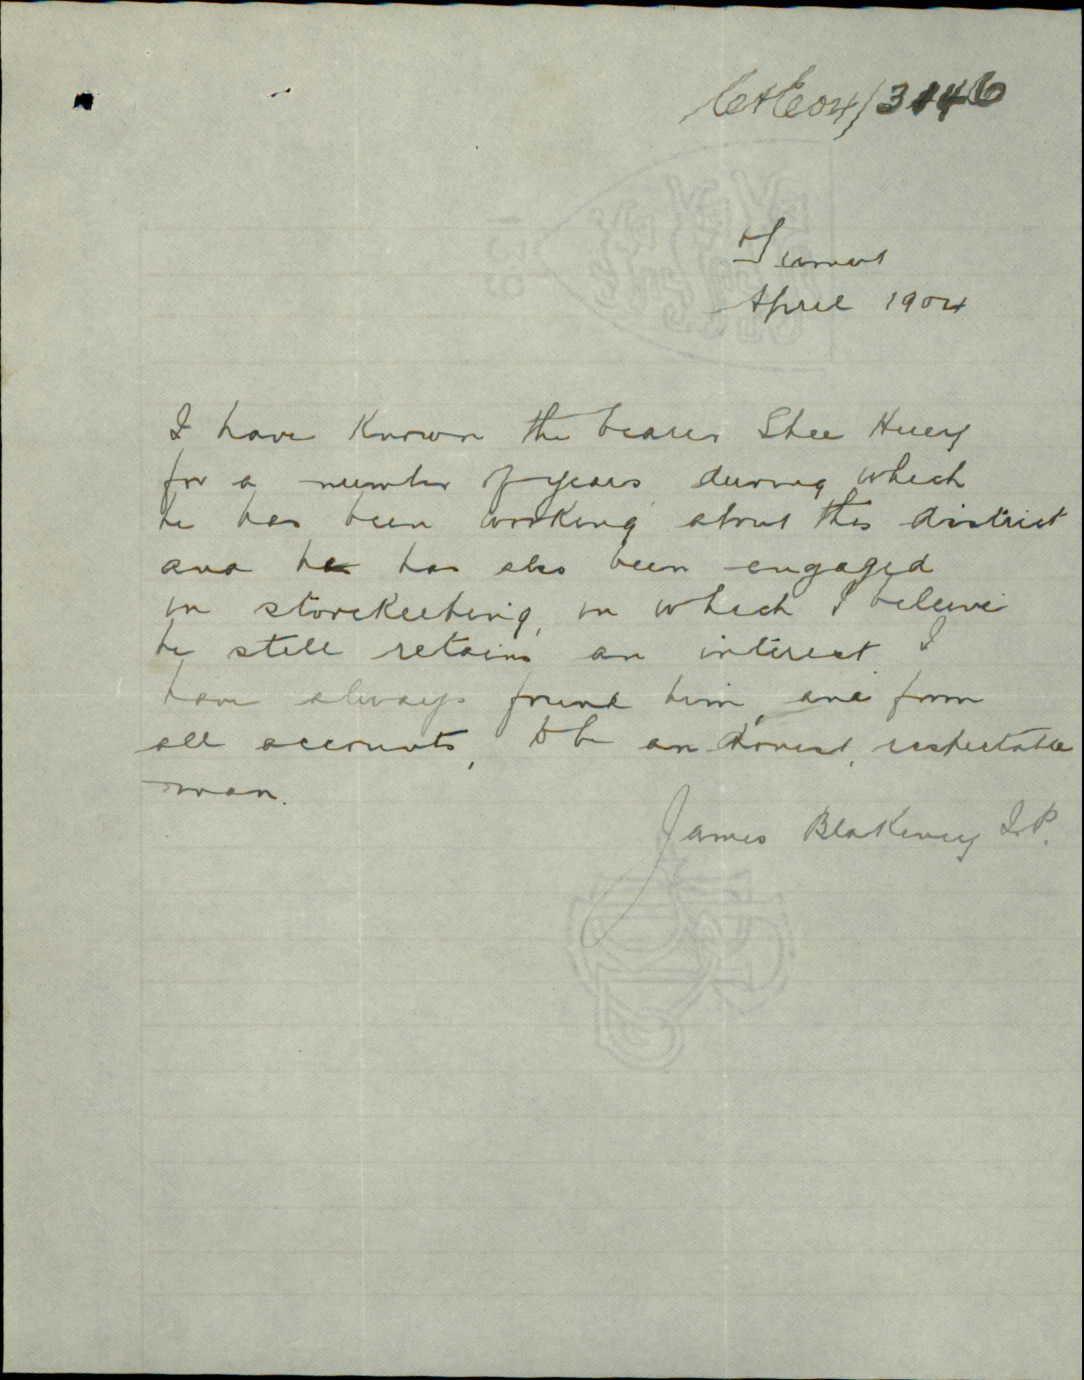 C&E04/3146
Tumut
April 1904
I have known the bearer Shee Huey
for a number of years during which
he has been working about this district
and he has also been engaged
in storekeeping, in which I believe
he still retains an interest. I
have always found him, and from
all accounts, to be an honest, respectable
man.
James Blakeney J.P.